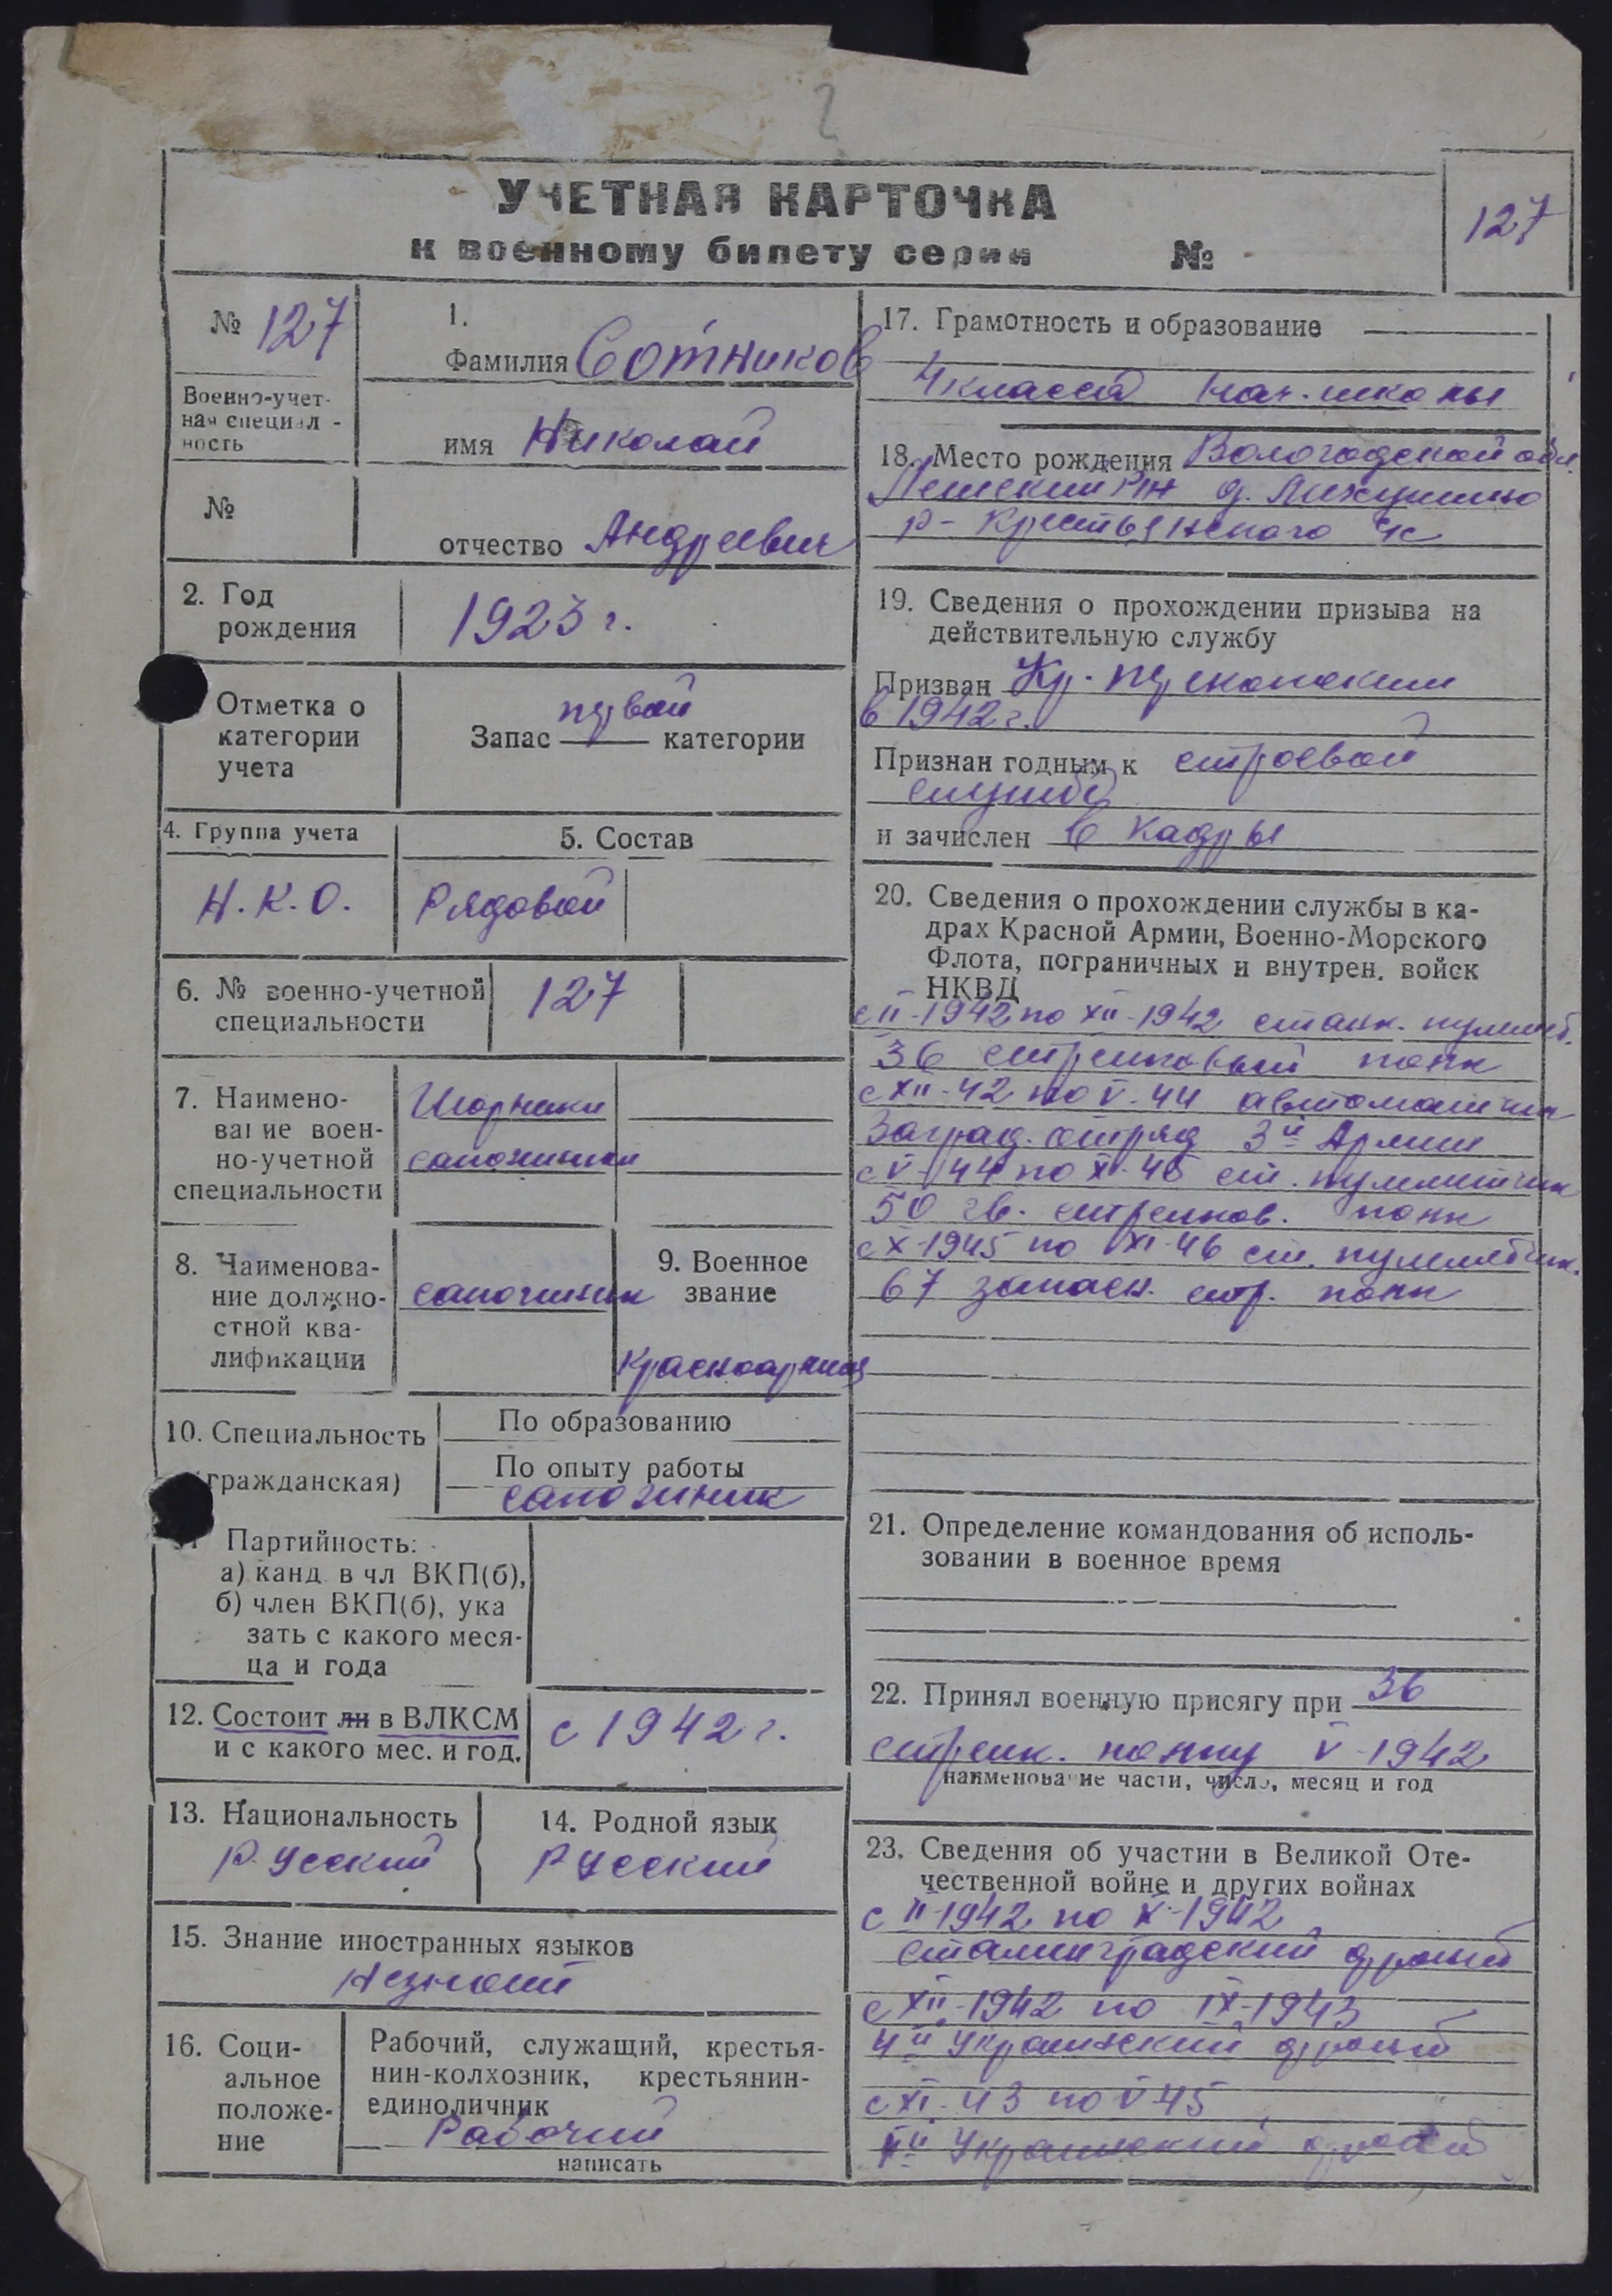 2
УЧЕТНАЯ КАРТОЧКА
к военному билету серии №
127
№ 127
Военно-учет-
ная специал -
ность
№
1.
Фамилия Сотников
имя Николай
отчество Андреевич
2. Год
рождения
1923 г.
Отметка о
категории
учета
первой
Запас категории
4. Группа учета
Н.К.О.
5. Состав
Рядовой
6. № военно-учетной
специальности
127
7. Наимено-
вание воен-
но-учетной
специальности
Шорники
сапожники
8. Наименова-
ние должно-
стной ква-
лификации
сапожник
9. Военное
звание
Красноармеец
10. Специальность
(гражданская)
По образованию
По опыту работы
сапожник
Партийность:
а) канд. в чл ВКП(б),
б) член ВКП(б), ука
зать с какого меся-
ца и года
12. Состоит ли в ВЛКСМ
и с какого мес. и год.
с 1942 г.
13. Национальность
Русский
14. Родной язык
Русский
15. Знание иностранных языков
Незнает
16. Соци-
альное
положе-
ние
Рабочий, служащий, крестья-
нин-колхозник, крестьянин-
единоличник
Рабочий
написать
17. Грамотность и образование
4 класса нач. школы
18. Место рождения Вологодской обл.
р-н д.
р- Крестьянского
19. Сведения о прохождении призыва на
действительную службу
Призван Кр.
в 1942 г.
Признан годным к строевой
службе
и зачислен в кадры
20. Сведения о прохождении службы в ка-
драх Красной Армии, Военно-Морского
Флота, пограничных и внутрен. войск
НКВД
с II-1942 по XII-1942 станк. пулемет.
36 стрелковый полк
с XII-42 по V-44 автоматчик
Заград. отряд 3й Армии
с V-44 по X-45 ст. пулеметчик
50 гв. стрелков. полк
с X-1945 по XI-46 ст. пулеметчик.
67 запасн. стр. полк
21. Определение командования об исполь-
зовании в военное время
22. Принял военную присягу при 36
стрелк. полку V-1942
наименование части, число, месяц и год
23. Сведения об участии в Великой Оте-
чественной войне и других войнах
с II-1942 по X-1942
сталинградский фронт
с XII-1942 по IX-1943
4й Украинский фронт
с XI-43 по V-45
Украинский фронт